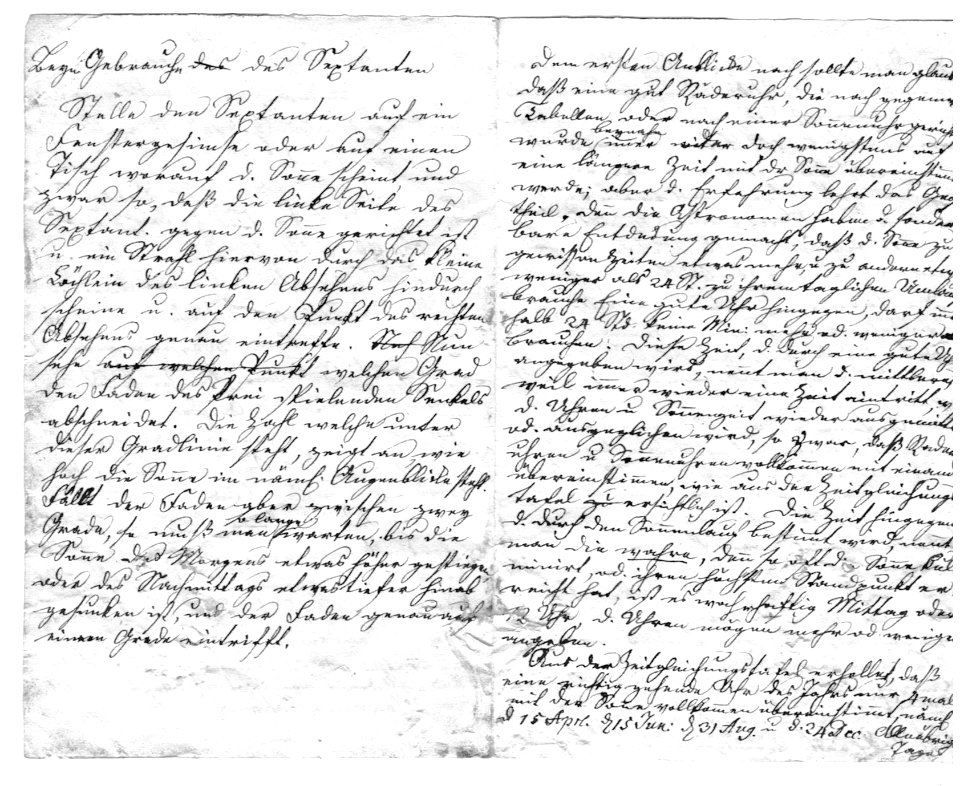 Beym Gebrauche des des Sextanten
Stelle den Sextanten auf ein
Fenstergesimse oder auf einen
Tisch worauf d. Sonne scheint und
zwar so, daß die linke Seite des
Sextant. gegen d. Sonne gerichtet ist
u. ein Strahl hiervon durch das kleine
Löchlein des linken Absehens hindurch
scheine u. auf den Punkt des rechten
Absehens genau eintreffe. Nun
sehe auf welchen Punkt welchen Grad
den Faden des frei spielenden Senkels
abschneidet. Die Zahl welche unter
dieser Gradlinie steht, zeigt an wie
hoch die Sonne im nämh. Augenblicke steht.
Fällt der Faden aber zwischen zwey
Grade, so muß man so lange warten, bis die
Sonne des Morgens etwas höher gestiegen
oder des Nachmittags etwas tiefer hinab
gesunken ist, und der Faden genau auf
einen Grade eintrifft.
Dem ersten Anblicke nach sollte man glau
daß eine gut Räderuhr, die nach gegeme
Tabellen oder nach einer Sonnenuhr gericht
wurde beynahe imer oder doch wenigstens auf
eine längere Zeit mit dr Sonne übereinstim
werde; aber d. Erfahrung lehrt das Geg
theil, den die Astronomen haben d. sonder
bare Entdeckung gemacht, daß d. Sonne zu
gewissen Zeiten etwas mehr, u zu andern etw
weniger als 24 St. zu ihrem täglichen Umlau
brauche. Eine gute Uhr hingegen, darf inne
halb 24 Std. keine Min: mehr od. weniger
brauchen. Diese Zeit, d. durch eine gute U
angegeben wird, nent man d. mittlere,
weil imer wieder eine Zeit eintritt, w
d. Uhren u Sonenzeit wieder ausgemittl
od. ausgeglichen wird, so zwar, daß Räder
uhren u Sonnenuhren vollkommen mit einand
übereinstimmen, wie aus der Zeitgleichungs
tafel zu ersichtlich ist. Die Zeit hingegen
d. durch den Sonnenlauf bestimt wird, nent
man die wahre, denn so oft d. Sonne kul
minirt, od. ihren höchsten Standpunkt er
reicht hat, ist es wahrhaftig Mittag oder
12 Uhr, d. Uhren mögen mehr od wenige
angeben.
Aus der Zeitgleichungstafel erhellet, daß
eine richtig gehende Uhr des Jahrs nur 4 mal
mit der Sonne vollkommen übereinstimmt, näml
d 15 Apri. d 15 Jun: d 31 Aug. u d. 24 Dec. Alle übrig
Tage